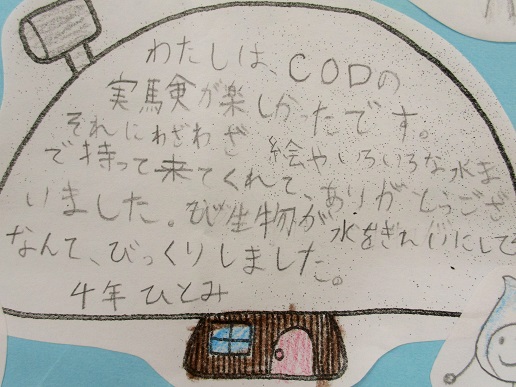 わたしは、CODの
実験が楽しかったです。
それにわざわざ 絵やいろいろな水ま
で持って来てくれて、ありがとうござ
いました。び生物が水をきれいにして
なんて、びっくりしました。
4年 ひとみ